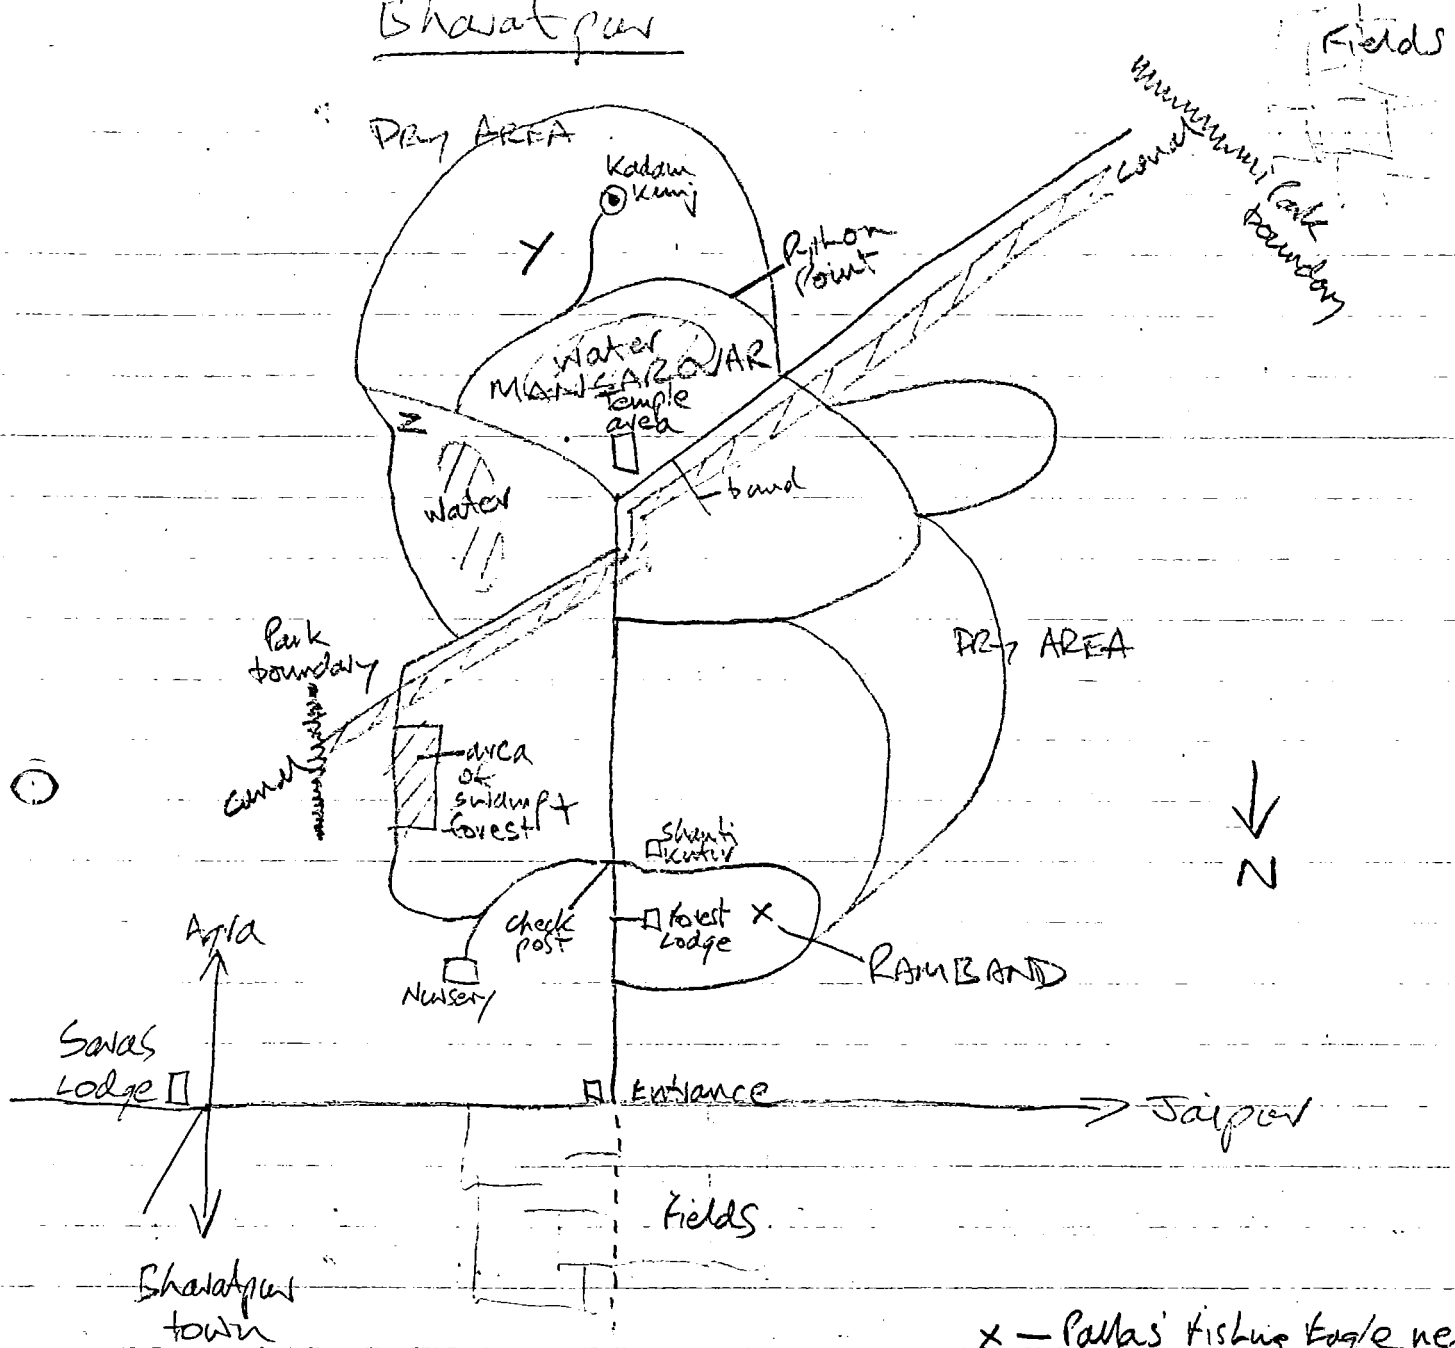 Bharatpur
Fields
DRY AREA
Kadam
Kunj
canal
Park
boundary
Y
Python
Point
Water
MANSAROVAR
Temple
area
Z
band
Water
Park
boundary
DRY AREA
canal
area
of
swamp +
forest
Shanti
Kutir
N
check
post
Forest
Lodge
X
Agra
RAMBAND
Nursery
Saras
Lodge
Entrance
Jaipur
Fields
Bharatpur
town
x — Pallas' Fishing Eagle ne